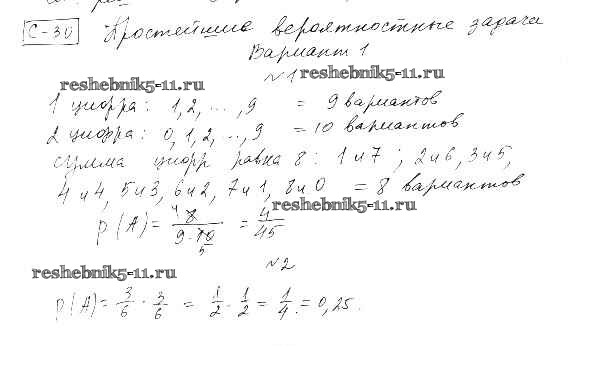 С-30 Простейшие вероятностные задачи
Вариант 1
№1
reshebnik5-11.ru reshebnik5-11.ru
1 цифра: 1,2, ..., 9 = 9 вариантов
2 цифра: 0,1,2, ..., 9 = 10 вариантов
сумма цифр равна 8: 1 и 7; 2 и 6, 3 и 5,
4 и 4, 5 и 3, 6 и 2, 7 и 1, 8 и 0 = 8 вариантов
reshebnik5-11.ru
P(A) = 8/(9·10) = 4/45
№2
reshebnik5-11.ru
P(A) = 3/6 · 3/6 = 1/2 · 1/2 = 1/4 = 0,25.